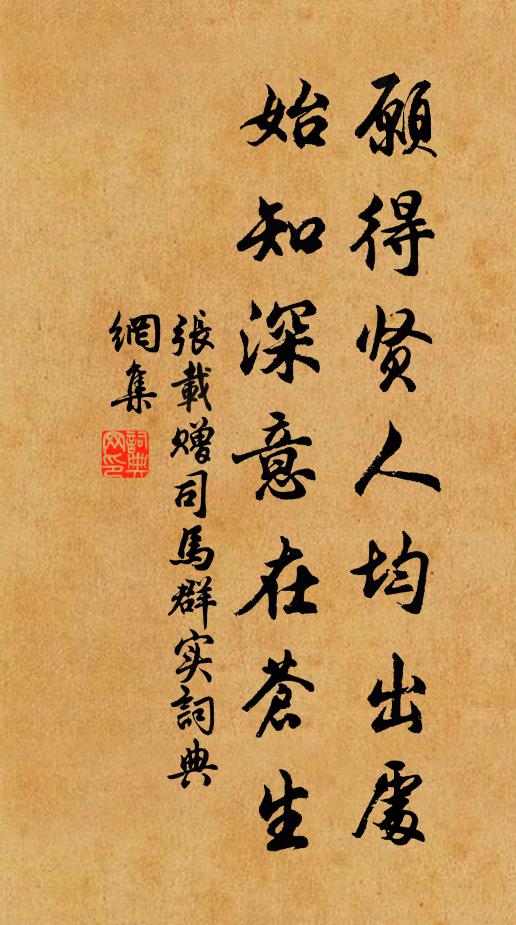 願得贤人均出處
始知深意在蒼生
張載赠司馬群实詞典
網集
詞典網印